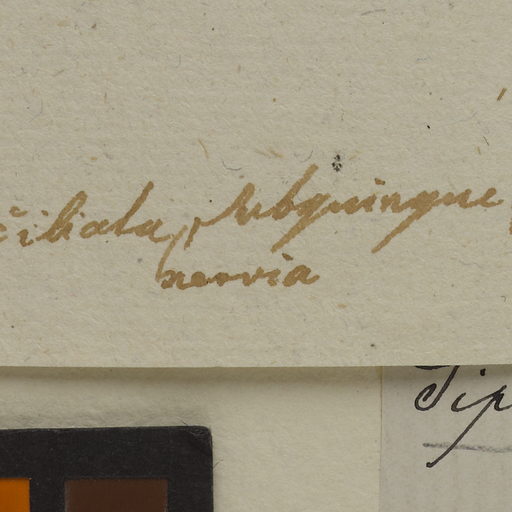 ciliata, subquinque
nervia
Sip